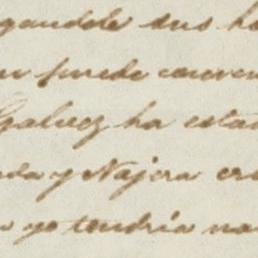 gandole sus ha
puede conven
Galvez ha esta
da y Najera cr
yo tendria na